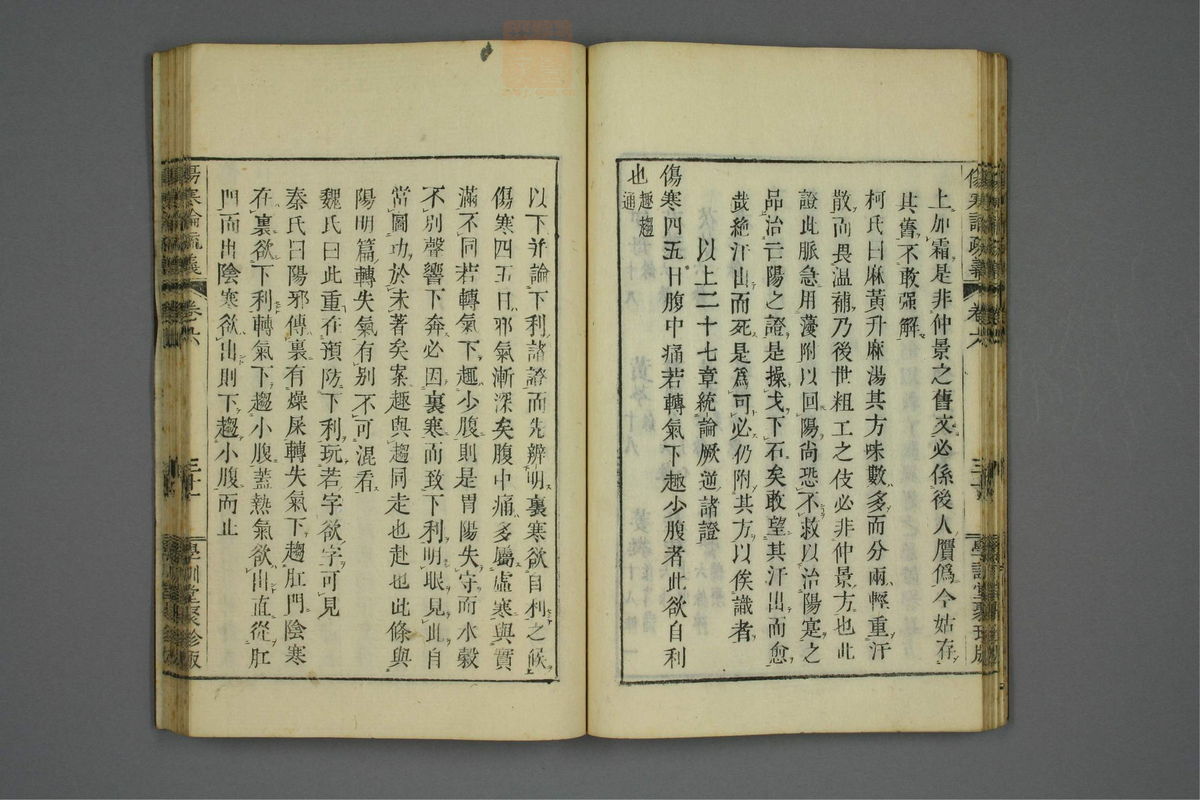 上加霜是非仲景之舊文必係後人贋僞今姑存
其舊不敢强解
柯氏曰麻黃升麻湯其方味數多而分兩輕重汗
散而畏温補乃後世粗工之伎必非仲景方也此
證此脈急用薓附以回陽尚恐不救以治陽寔之
品治亡陽之證是操戈下石矣敢望其汗出而愈
哉絶汗出而死是爲可必仍附其方以俟識者
以上二十七章統論厥逆諸證
傷寒四五日腹中痛若轉氣下趣少腹者此欲自利
也趣趨通
傷寒論疏義
卷六
三十
學訓堂聚珍版
以下幷論下利諸證而先辨明裏寒欲自利之候
傷寒四五日邪氣漸深矣腹中痛多屬虛寒與實
滿不同若轉氣下趣少腹則是胃陽失守而水穀
不別聲響下奔必因裏寒而致下利明眼見此自
當圖功於未著矣案趣與趨同走也赴也此條與
陽明篇轉失氣有别不可混看
魏氏曰此重在預防下利玩若字欲字可見
秦氏曰陽邪傳裏有燥屎轉失氣下趨肛門陰寒
在裏欲下利轉氣下趨小腹蓋熱氣欲出直從肛
門而出陰寒欲出則下趨小腹而止
傷寒論疏義
卷六
三十一
學訓堂聚珍版